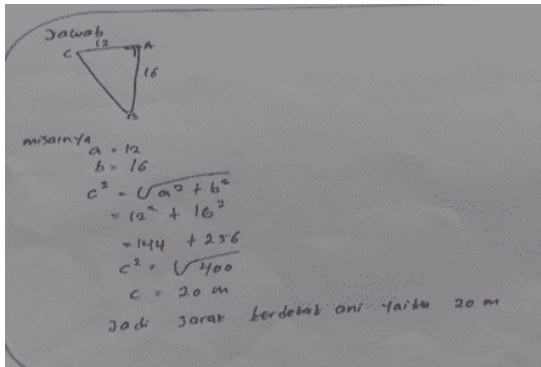 Jawab
12
C A
16
B
misalnya
a = 12
b = 16
c² = √a² + b²
= 12² + 16²
= 144 + 256
c² = √400
c = 20 m
Jadi Jarak terdekat ani yaitu 20 m